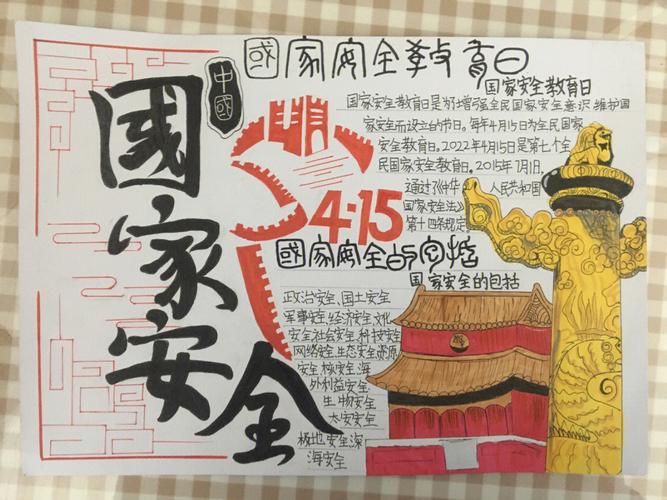 國家安全
中國
國家安全教育日
国家安全教育日
国家安全教育日是为增强全民国家安全意识,维护国
家安全而设立的节日。每年4月15日为全民国家
安全教育日。2022年4月15日是第七个全
民国家安全教育日。2015年7月1日,
通过《中华
人民共和国
国家安全法》
第十四条规定
4·15
國家安全的包括
国家安全的包括
政治安全、国土安全
军事安全,经济安全,文化
安全社会安全,科技安全
网络安全,生态安全资源
安全,核安全,海
外利益安全,
生物安全
太空安全
极地安全深
海安全